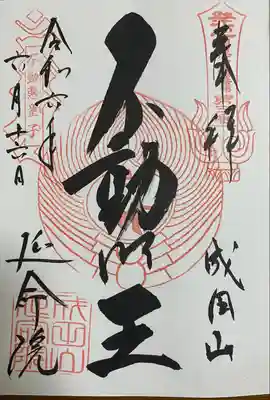 奉拝
成田山
不動明王
令和六年
六月十六日
延命院